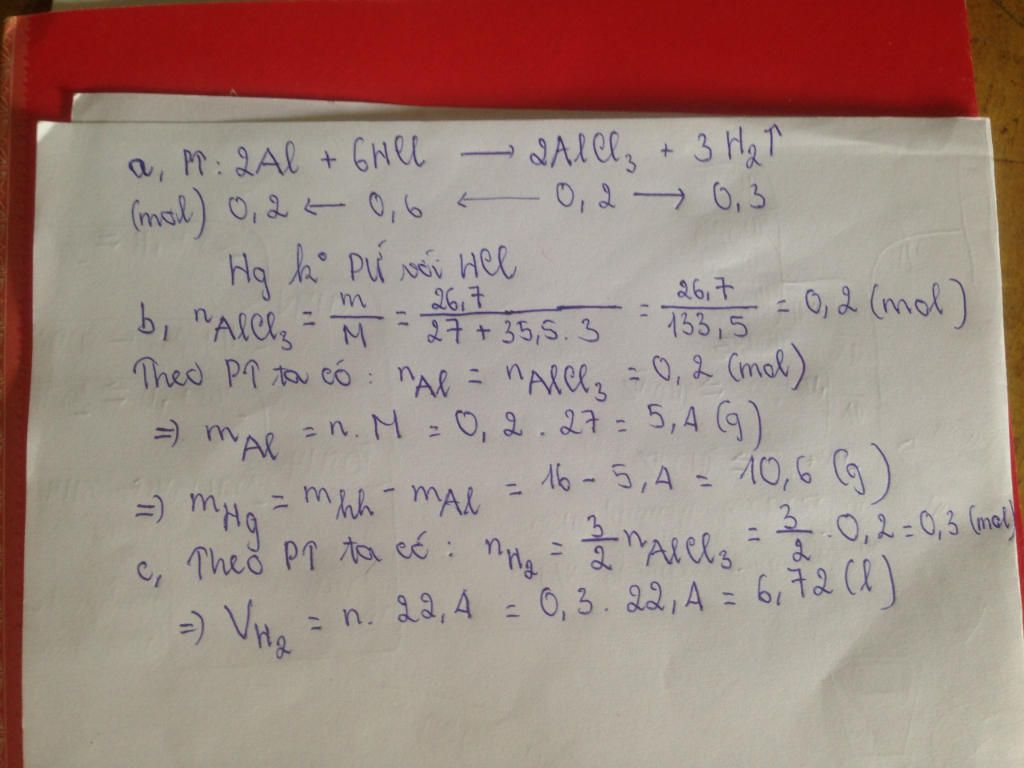 a, PT: 2Al + 6HCl → 2AlCl₃ + 3H₂↑
(mol) 0,2 ← 0,6 ← 0,2 → 0,3
Hg k° PỨ với HCl
b, nAlCl₃ = m/M = 26,7/(27 + 35,5.3) = 26,7/133,5 = 0,2 (mol)
Theo PT ta có: nAl = nAlCl₃ = 0,2 (mol)
=> mAl = n.M = 0,2.27 = 5,4 (g)
=> mHg = mhh - mAl = 16 - 5,4 = 10,6 (g)
c, Theo PT ta có: nH₂ = 3/2 nAlCl₃ = 3/2 . 0,2 = 0,3 (mol)
=> VH₂ = n. 22,4 = 0,3. 22,4 = 6,72 (l)